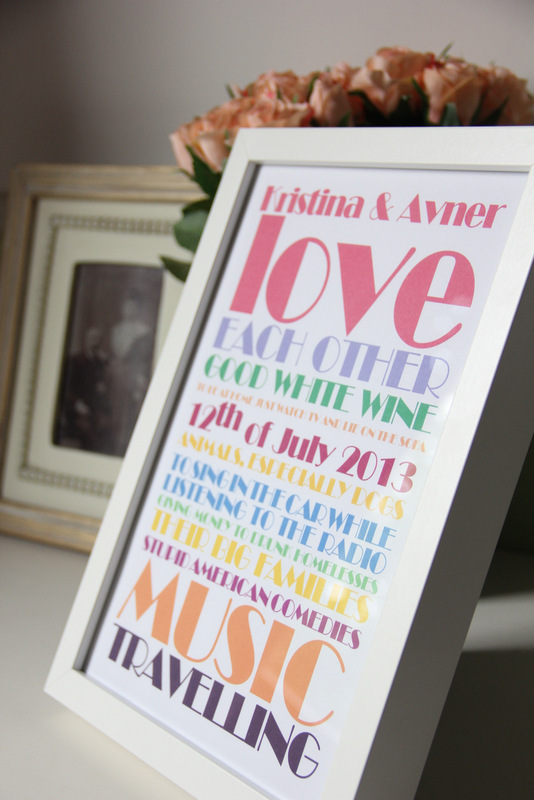 Kristina & Avner
love
EACH OTHER
GOOD WHITE WINE
TO BE AT HOME JUST WATCH TV AND LIE ON THE SOFA
12th of July 2013
ANIMALS, ESPECIALLY DOGS
TO SING IN THE CAR WHILE
LISTENING TO THE RADIO
GIVING MONEY TO DRUNK HOMELESSES
THEIR BIG FAMILIES
STUPID AMERICAN COMEDIES
MUSIC
TRAVELLING